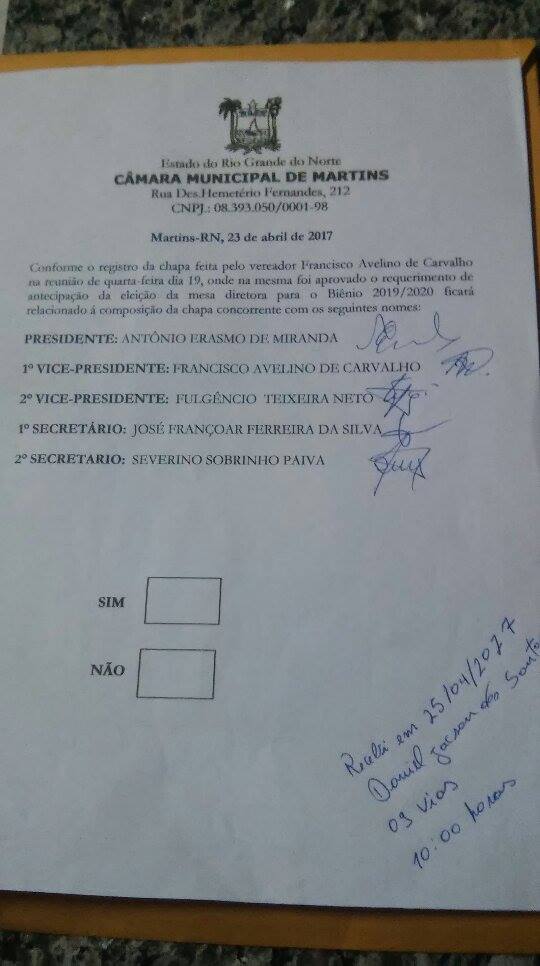 Estado do Rio Grande do Norte
CÂMARA MUNICIPAL DE MARTINS
Rua Des.Hemetério Fernandes, 212
CNPJ.: 08.393.050/0001-98
Martins-RN, 23 de abril de 2017
Conforme o registro da chapa feita pelo vereador Francisco Avelino de Carvalho
na reunião de quarta-feira dia 19, onde na mesma foi aprovado o requerimento de
antecipação da eleição da mesa diretora para o Biênio 2019/2020 ficará
relacionado á composição da chapa concorrente com os seguintes nomes:
PRESIDENTE: ANTÔNIO ERASMO DE MIRANDA
1º VICE-PRESIDENTE: FRANCISCO AVELINO DE CARVALHO
2º VICE-PRESIDENTE: FULGÊNCIO TEIXEIRA NETO
1º SECRETÁRIO: JOSÉ FRANÇOAR FERREIRA DA SILVA
2º SECRETARIO: SEVERINO SOBRINHO PAIVA
SIM
NÃO
Recebi em 25/04/2017
Daniel dos Santo
09 vias
10:00 horas